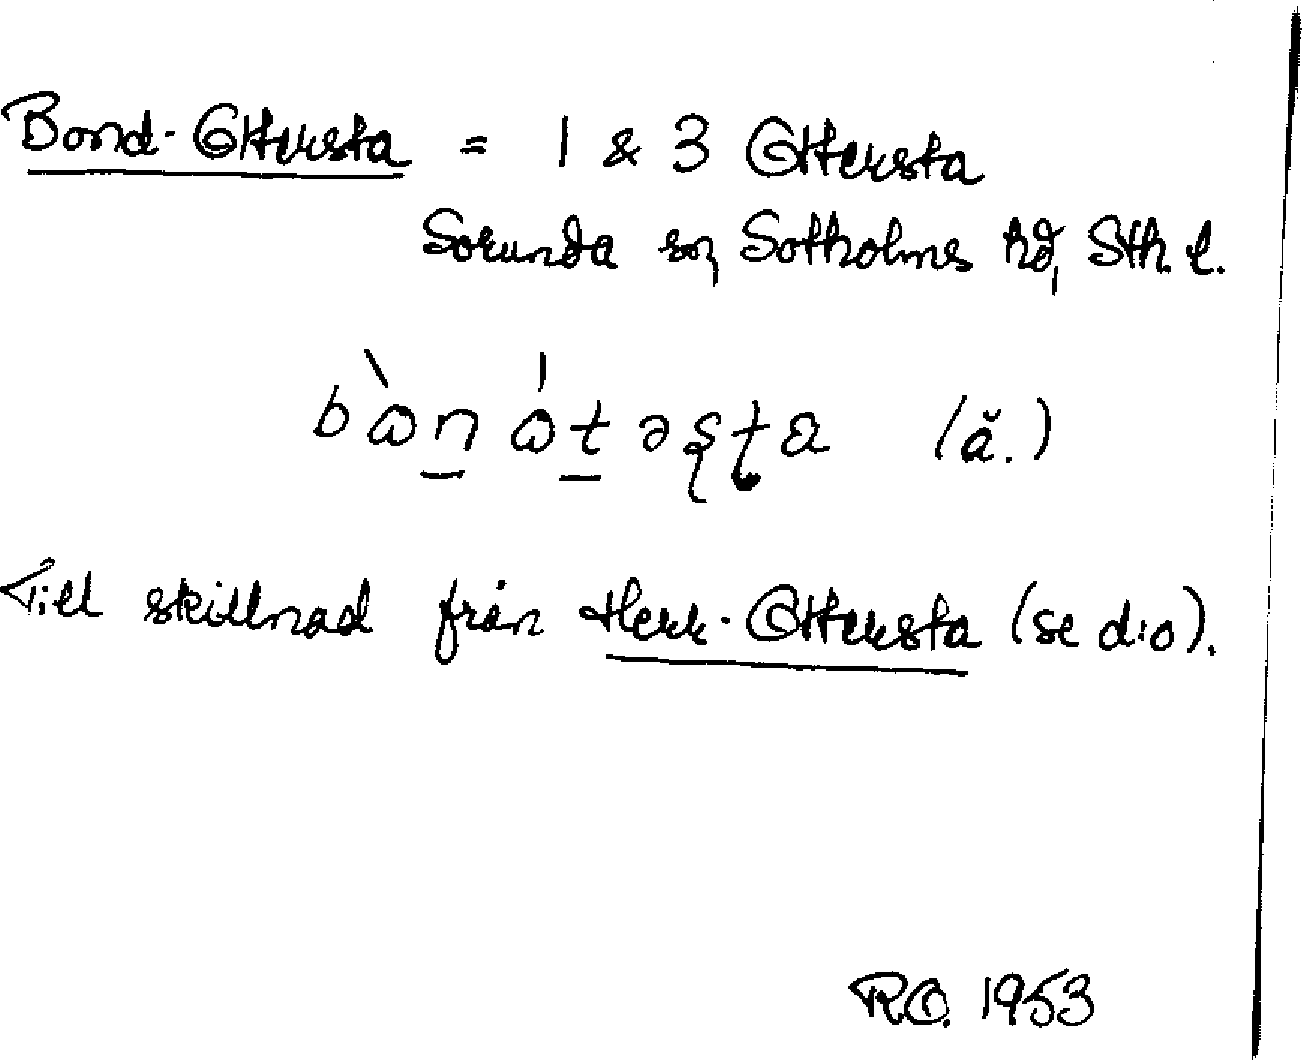 Bond-Ottersta = 1 & 3 Ottersta
Sorunda sn, Sotholms hd, Sth. l.
(ă.)
Till skillnad från Herr-Ottersta (se d:o).
R.O. 1953